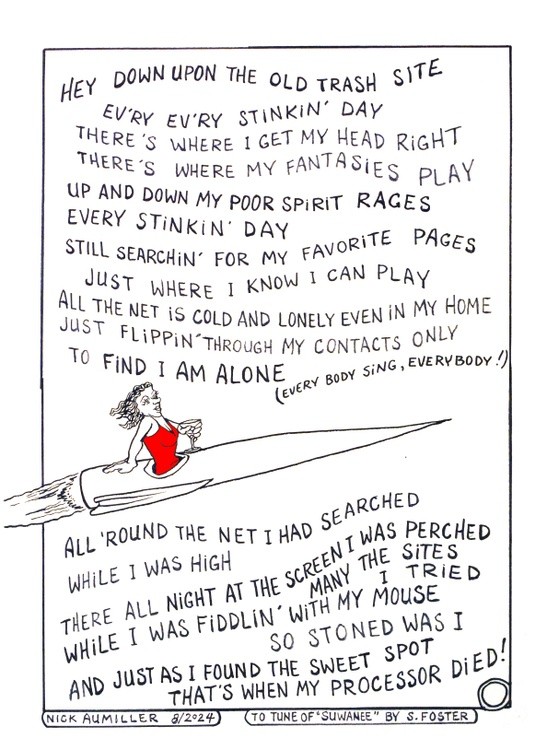 HEY DOWN UPON THE OLD TRASH SITE
EV'RY EV'RY STINKIN' DAY
THERE'S WHERE I GET MY HEAD RiGHT
THERE'S WHERE MY FANTASIES PLAY
UP AND DOWN MY POOR SPiRiT RAGES
EVERY STiNKiN' DAY
STiLL SEARCHiN' FOR MY FAVORiTE PAGES
JUST WHERE I KNOW I CAN PLAY
ALL THE NET iS COLD AND LONELY EVEN iN MY HOME
JUST FLiPPiN' THROUGH MY CONTACTS ONLY
TO FiND I AM ALONE
(EVERY BODY SiNG, EVERYBODY!)
ALL 'ROUND THE NET I HAD SEARCHED
WHiLE I WAS HiGH
THERE ALL NiGHT AT THE SCREEN I WAS PERCHED
MANY THE SiTES I TRiED
WHiLE I WAS FiDDLiN' WiTH MY MOUSE
SO STONED WAS I
AND JUST AS I FOUND THE SWEET SPOT
THAT'S WHEN MY PROCESSOR DiED!
NICK AUMILLER 8/2024 (TO TUNE OF "SUWANEE" BY S. FOSTER)